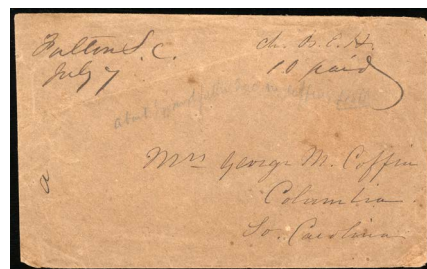 Fulton S. C.
July 7
ch. B. C. H.
10 paid
Mrs George M. Coffin
Columbia
So. Carolina